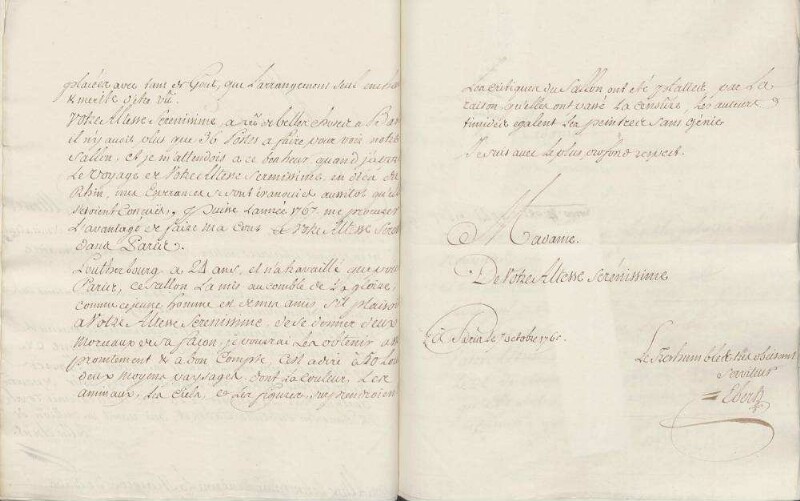 placées avec tant de Gout, que L'arrangement seul
& merite d'etre vû.
Votre Altesse Serenissime a de belles choses a
il n'y auoit plus que 36 Postes a faire, pour voir notre
Sallon, et je m'attendois a ce bonheur quand j'
Le voyage de Votre Altesse Serenissime, en deça du
Rhin, mes Esperances se sont évanouies aussitot qu'elles
étoient Conçues, Puisse l'année 1767 me procurer
L'avantage de faire ma Cour a Votre Altesse
dans Paris.
Loutherbourg a 24 ans, et n'a travaillé que pour
Paris, ce Sallon l'a mis au comble de La gloire,
comme ce jeune homme est de mes amis, s'il plaisoit
a Votre Altesse Serenissime, de se donner deux
Morceaux de sa façon, je pourrai Les obtenir
promtement & a bon Compte, c'est a dire a
deux moyens paysages dont La Couleur, Les
animaux, Les Ciels, et Les figures surprendroient
Les critiques du Sallon ont eté par La
raison, qu'elles ont passé La Censure, Les auteurs
timides egalent Les peintres sans génie
Je suis avec Le plus profond respect.
Madame.
De Votre Altesse Serénissime
à Paris Le 7 octobre 176
Le tres humble & tres obeissant
serviteur
Eberts